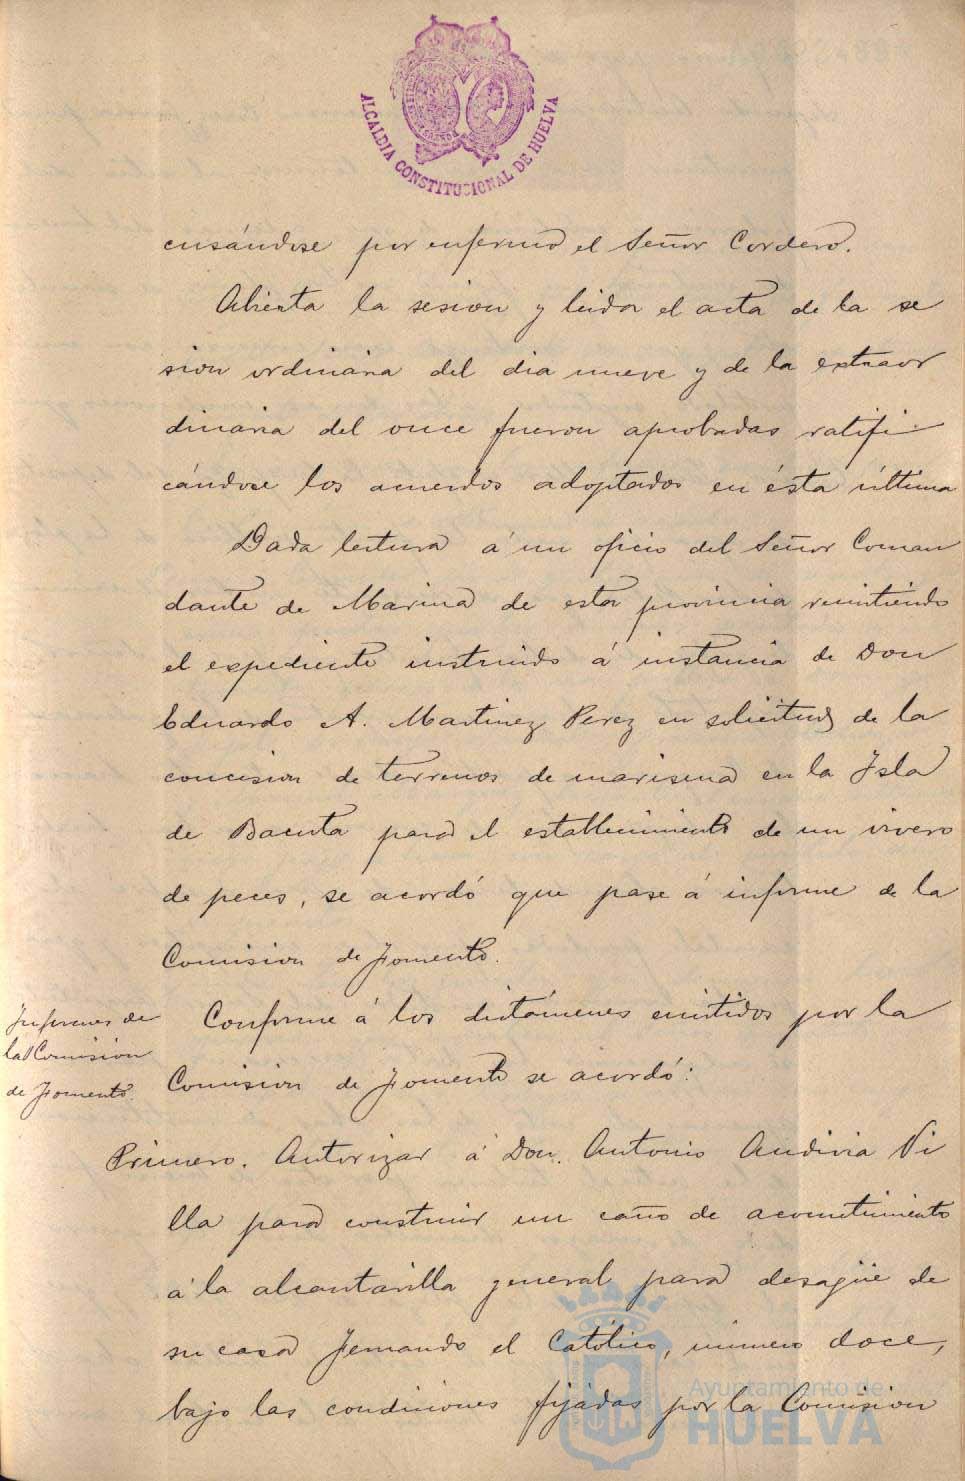 ALCALDIA CONSTITUCIONAL DE HUELVA
cusándose por enfermo el Señor Cordero.
Abierta la sesion y leida el acta de la se
sion ordinaria del dia nueve y de la extraor
dinaria del once fueron aprobadas ratifi-
cándose los acuerdos adoptados en ésta última
Dada lectura á un oficio del Señor Coman
dante de Marina de esta provincia remitiendo
el expediente instruido á instancia de Don
Eduardo A. Martinez Perez en solicitud de la
concesion de terrenos de marisma en la Isla
de Bacuta para el establecimiento de un vivero
de peces, se acordó que pase á informe de la
Comision de Fomento.
Informes de
la Comision
de Fomento.
Conforme á los dictámenes emitidos por la
Comision de Fomento se acordó:
Primero. Autorizar á Don. Antonio Andivia Vi
lla para construir un caño de acometimiento
á la alcantarilla general para desagüe de
su casa Fernando el Católico, número doce,
bajo las condiciones fijadas por la Comision
Ayuntamiento de
HUELVA